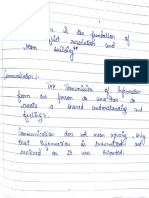 is the foundation of
conflict resolution and
team building"
Communication :-
The Transmission of Information
from one person to another to
create a shared understanding and
feelings.
Communication does not mean agreeing, only
that information is transmitted and
received as it was intended.